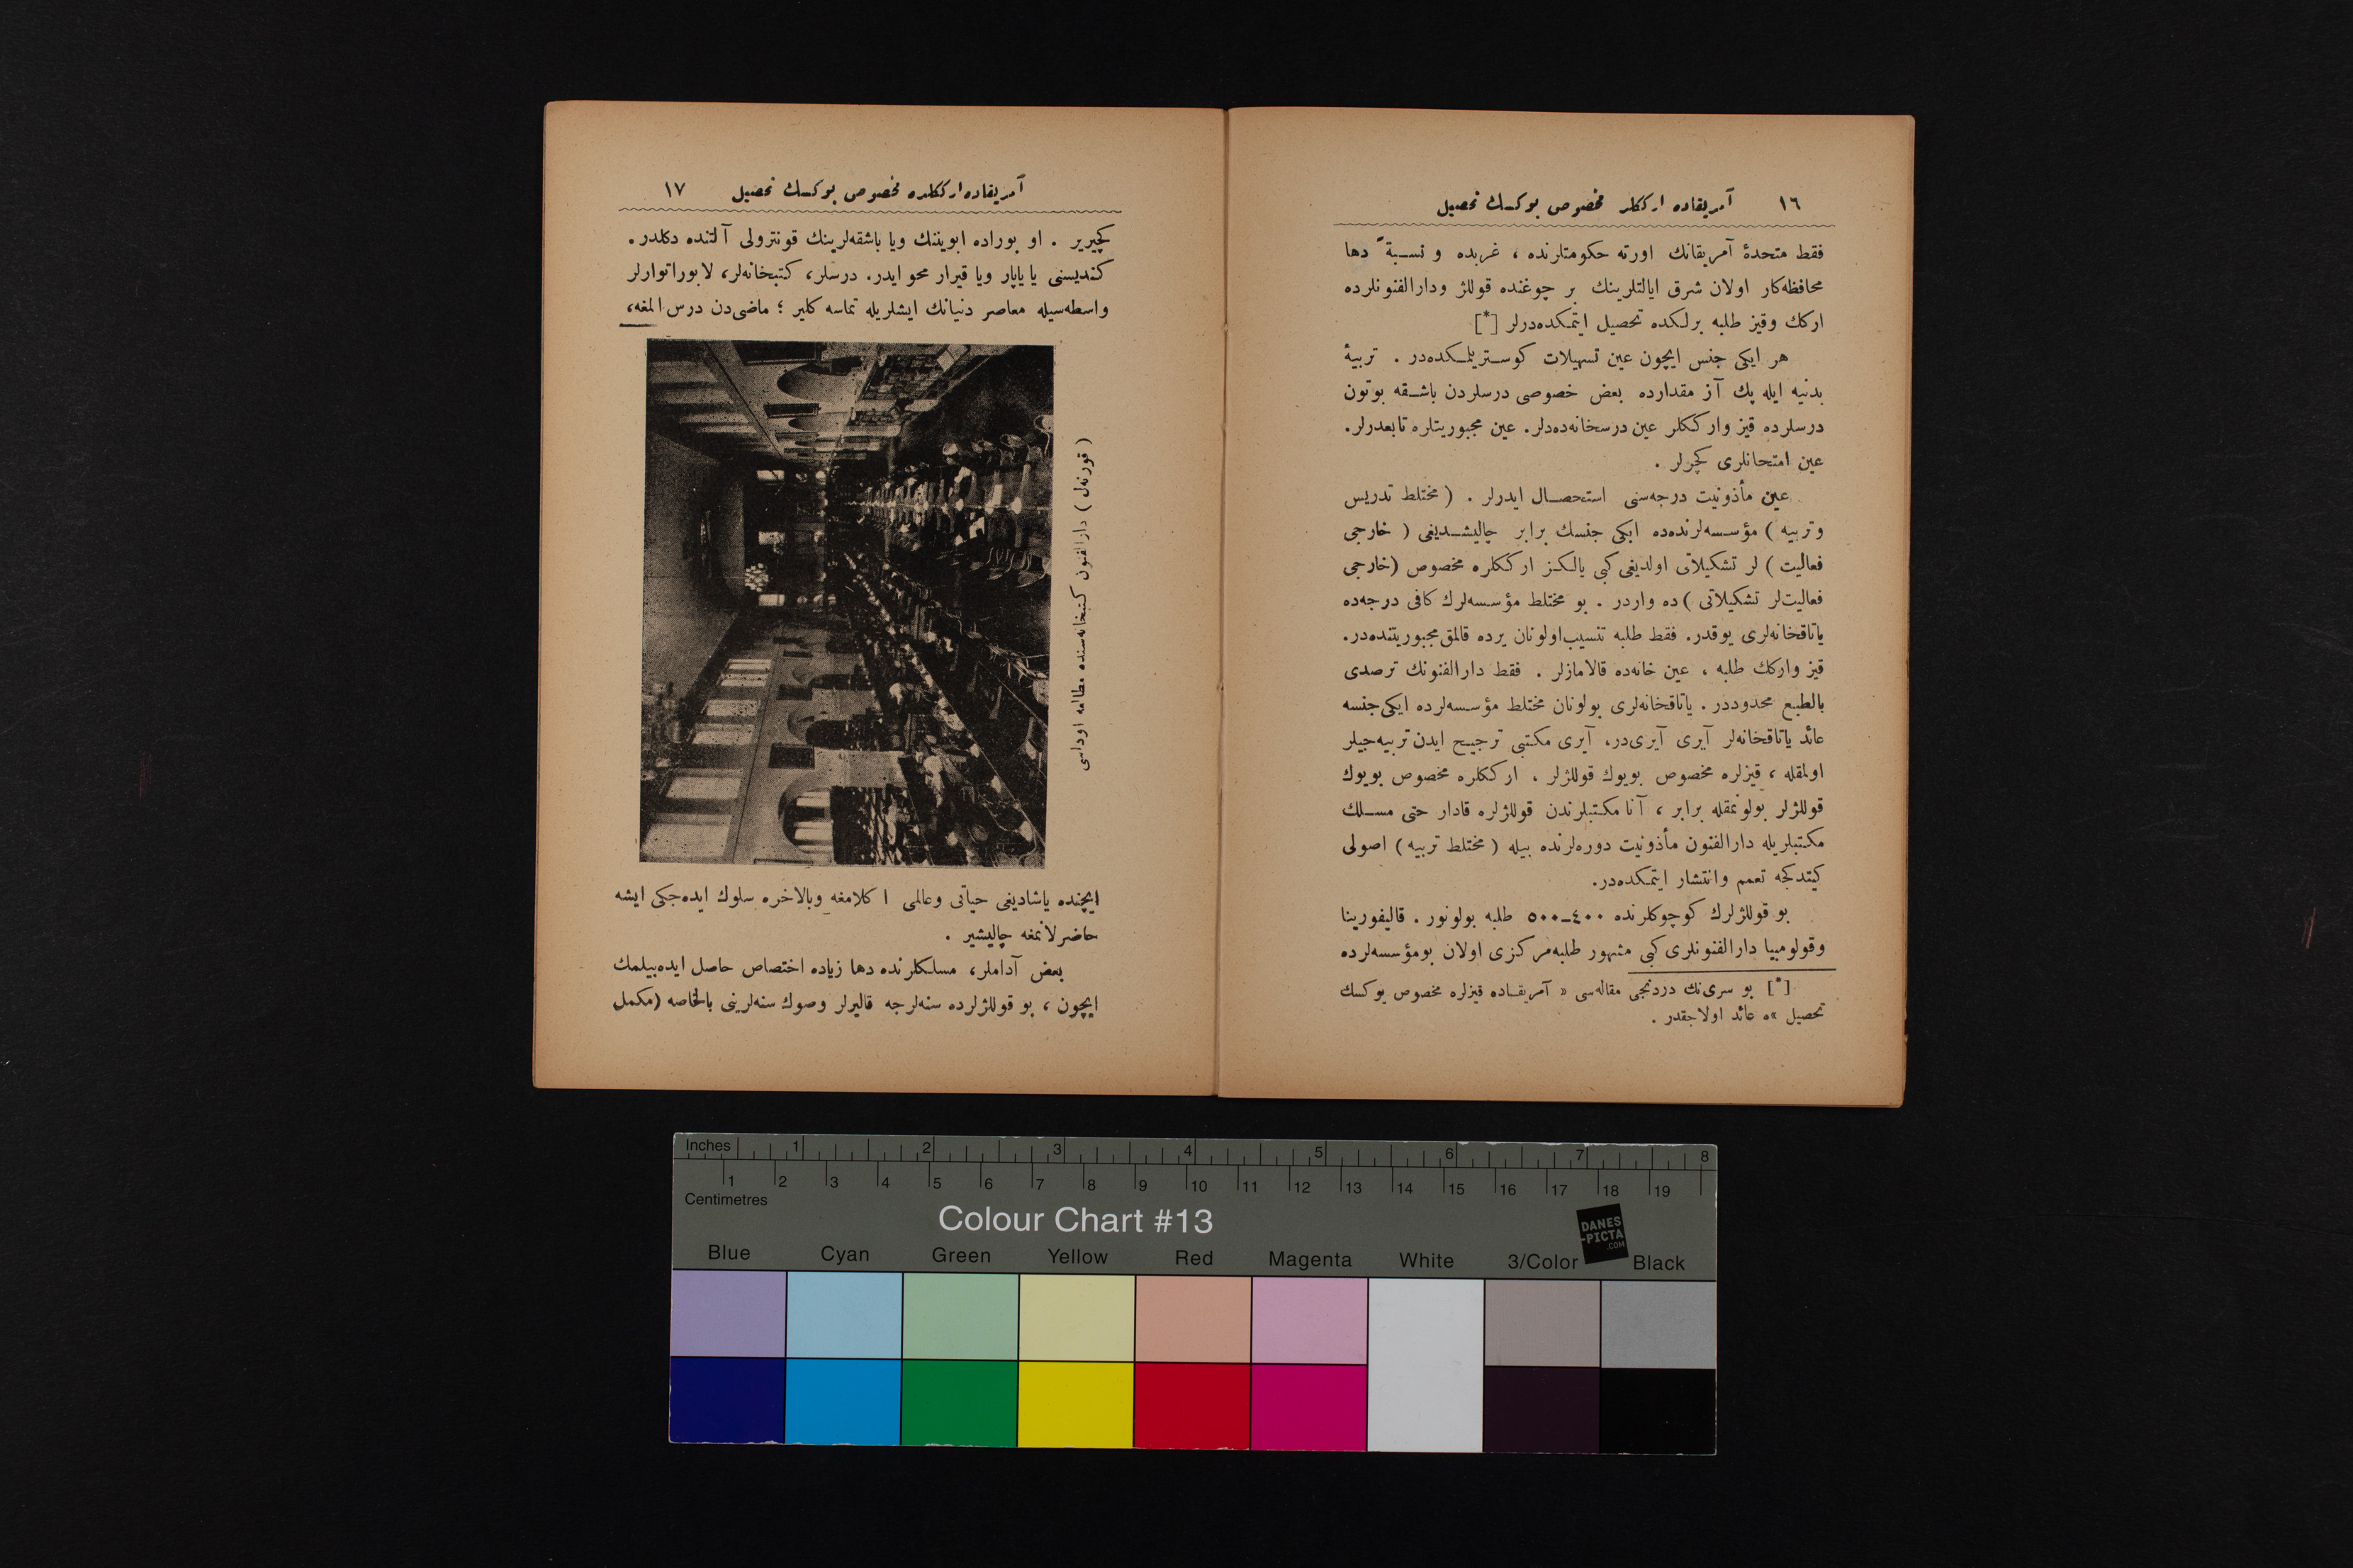 ١٦ آمریقاده ارککلر مخصوص یوکسك تحصیل
فقط متحدۀ آمریقانك اورته حکومتلرنده ، غربده و نسبةً دها
محافظه‌کار اولان شرق ایالتلرینك بر چوغنده قوللژ ودارالفنونلرده
ارکك وقیز طلبه برلکده تحصیل ایتمکده‌درلر [*]
هر ایکی جنس ایچون عین تسهیلات کوستریلمکده‌در . تربیۀ
بدنیه ایله پك آز مقدارده بعض خصوصی درسلردن باشقه بوتون
درسلرده قیز وارککلر عین درسخانه‌ده‌دلر. عین مجبوریتلره تابعدرلر.
عین امتحانلری کچرلر .
عین مأذونیت درجه‌سنی استحصال ایدرلر . ( مختلط تدریس
وتربیه ) مؤسسه‌لرنده‌ده ایکی جنسك برابر چالیشدیغی ( خارجی
فعالیت ) لر تشکیلاتی اولدیغی کبی یالکز ارککلره مخصوص (خارجی
فعالیت‌لر تشکیلاتی ) ده واردر . بو مختلط مؤسسه‌لرك کافی درجه‌ده
یاتاقخانه‌لری یوقدر. فقط طلبه تنسیب‌اولونان یرده قالمق‌مجبوریتنده‌در.
قیز وارکك طلبه ، عین خانه‌ده قالامازلر . فقط دارالفنونك ترصدی
بالطبع محدوددر . یاتاقخانه‌لری بولونان مختلط مؤسسه‌لرده ایکی‌جنسه
عائد یاتاقخانه‌لر آیری آیری‌در، آیری مکتبی ترجیح ایدن تربیه‌جیلر
اولمقله ، قیزلره مخصوص بویوك قوللژلر ، ارککلره مخصوص بویوك
قوللژلر بولونمقله برابر ، آنا مکتبلرندن قوللژلره قادار حتی مسلك
مکتبلریله دارالفنون مأذونیت دوره‌لرنده بیله ( مختلط تربیه ) اصولی
کیتدکجه تعمم وانتشار ایتمکده‌در.
بو قوللژلرك کوچوکلرنده ٤٠٠ــ٥٠٠ طلبه بولونور . قالیفورنیا
وقولومبیا دارالفنونلری کبی مشهور طلبه‌مرکزی اولان بومؤسسه‌لرده
[*] بو سری‌نك دردنجی مقاله‌سی « آمریقاده قیزلره مخصوص یوکسك
تحصیل »ه عائد اولاجقدر .
آمریقاده ارککلره مخصوص یوکسك تحصیل ١٧
کچیریر . او بوراده ابویننك ویا باشقه‌لرینك قونترولی آلتنده دکلدر.
کندیسنی یا یاپار ویا قیرار محو ایدر. درسلر، کتبخانه‌لر، لابوراتوارلر
واسطه‌سیله معاصر دنیانك ایشلریله تماسه کلیر ؛ ماضی‌دن درس المغه،
( قورنه‌ل ) دارالفنون کتبخانه‌سنده مطالعه اوداسی
ایچنده یاشادیغی حیاتی وعالمی اکلامغه وبالاخره سلوك ایده‌جکی ایشه
حاضرلانمغه چالیشیر .
بعض آداملر، مسلکلرنده دها زیاده اختصاص حاصل ایده‌بیلمك
ایچون ، بو قوللژلرده سنه‌لرجه قالیرلر وصوك سنه‌لرینی بالخاصه (مکمل
Inches 1 2 3 4 5 6 7 8
1 2 3 4 5 6 7 8 9 10 11 12 13 14 15 16 17 18 19
Centimetres
Colour Chart #13
DANES
-PICTA
.COM
Blue Cyan Green Yellow Red Magenta White 3/Color Black